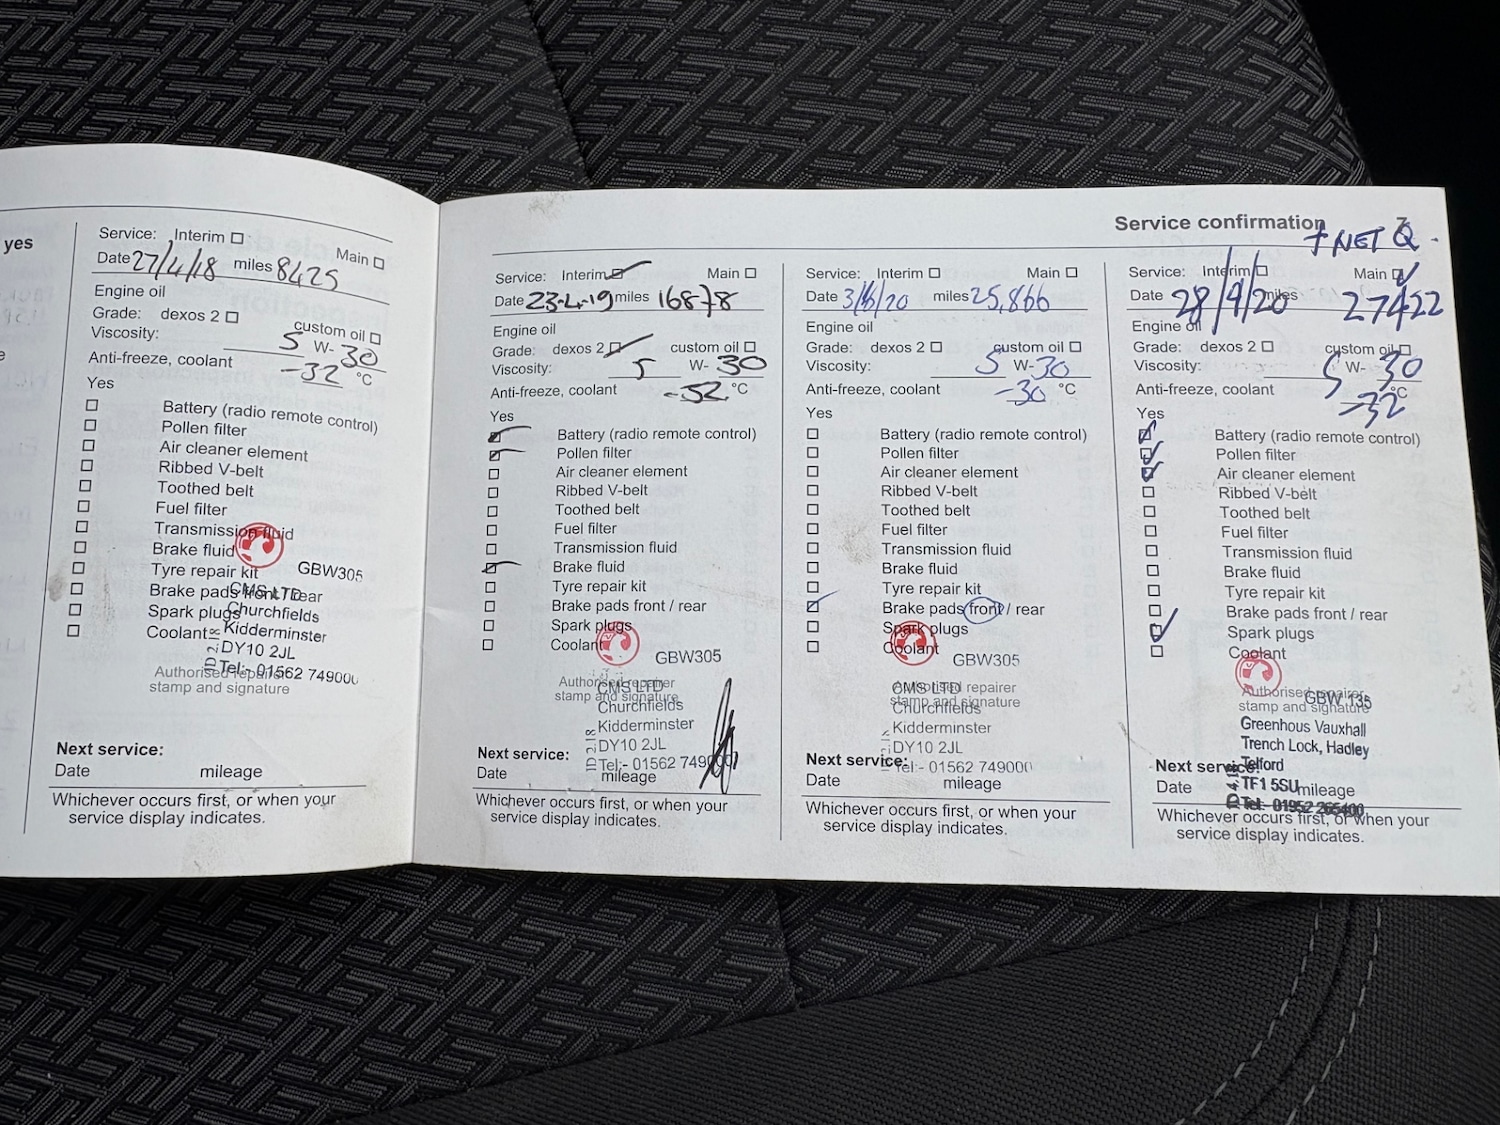 yes
Service: Interim Main
Date 27/4/18 miles 8425
Engine oil
Grade: dexos 2 custom oil
Viscosity: 5 W- 30
Anti-freeze, coolant -32 °C
Yes
Battery (radio remote control)
Pollen filter
Air cleaner element
Ribbed V-belt
Toothed belt
Fuel filter
Transmission fluid
Brake fluid
Tyre repair kit
Brake pads front / rear
Spark plugs
Coolant
GBW305
CMS LTD
Churchfields
Kidderminster
DY10 2JL
Tel:- 01562 749000
Authorised repairer
stamp and signature
Next service:
Date mileage
Whichever occurs first, or when your
service display indicates.
Service confirmation
+ NET Q.
Service: Interim Main
Date 23-4-19 miles 16878
Engine oil
Grade: dexos 2 custom oil
Viscosity: 5 W- 30
Anti-freeze, coolant -32 °C
Yes
Battery (radio remote control)
Pollen filter
Air cleaner element
Ribbed V-belt
Toothed belt
Fuel filter
Transmission fluid
Brake fluid
Tyre repair kit
Brake pads front / rear
Spark plugs
Coolant
GBW305
Authorised repairer
stamp and signature
CMS LTD
Churchfields
Kidderminster
DY10 2JL
Tel:- 01562 749000
Next service:
Date mileage
Whichever occurs first, or when your
service display indicates.
Service: Interim Main
Date 3/6/20 miles 25,866
Engine oil
Grade: dexos 2 custom oil
Viscosity: 5 W- 30
Anti-freeze, coolant -30 °C
Yes
Battery (radio remote control)
Pollen filter
Air cleaner element
Ribbed V-belt
Toothed belt
Fuel filter
Transmission fluid
Brake fluid
Tyre repair kit
Brake pads front / rear
Spark plugs
Coolant
GBW305
Authorised repairer
stamp and signature
CMS LTD
Churchfields
Kidderminster
DY10 2JL
Tel:- 01562 749000
Next service:
Date mileage
Whichever occurs first, or when your
service display indicates.
Service: Interim Main
Date 28/9/20 miles 27422
Engine oil
Grade: dexos 2 custom oil
Viscosity: 5 W- 30
Anti-freeze, coolant -32 °C
Yes
Battery (radio remote control)
Pollen filter
Air cleaner element
Ribbed V-belt
Toothed belt
Fuel filter
Transmission fluid
Brake fluid
Tyre repair kit
Brake pads front / rear
Spark plugs
Coolant
Authorised repairer
stamp and signature
GBW 135
Greenhous Vauxhall
Trench Lock, Hadley
Telford
TF1 5SU
Tel:- 01952 265400
Next service:
Date mileage
Whichever occurs first, or when your
service display indicates.